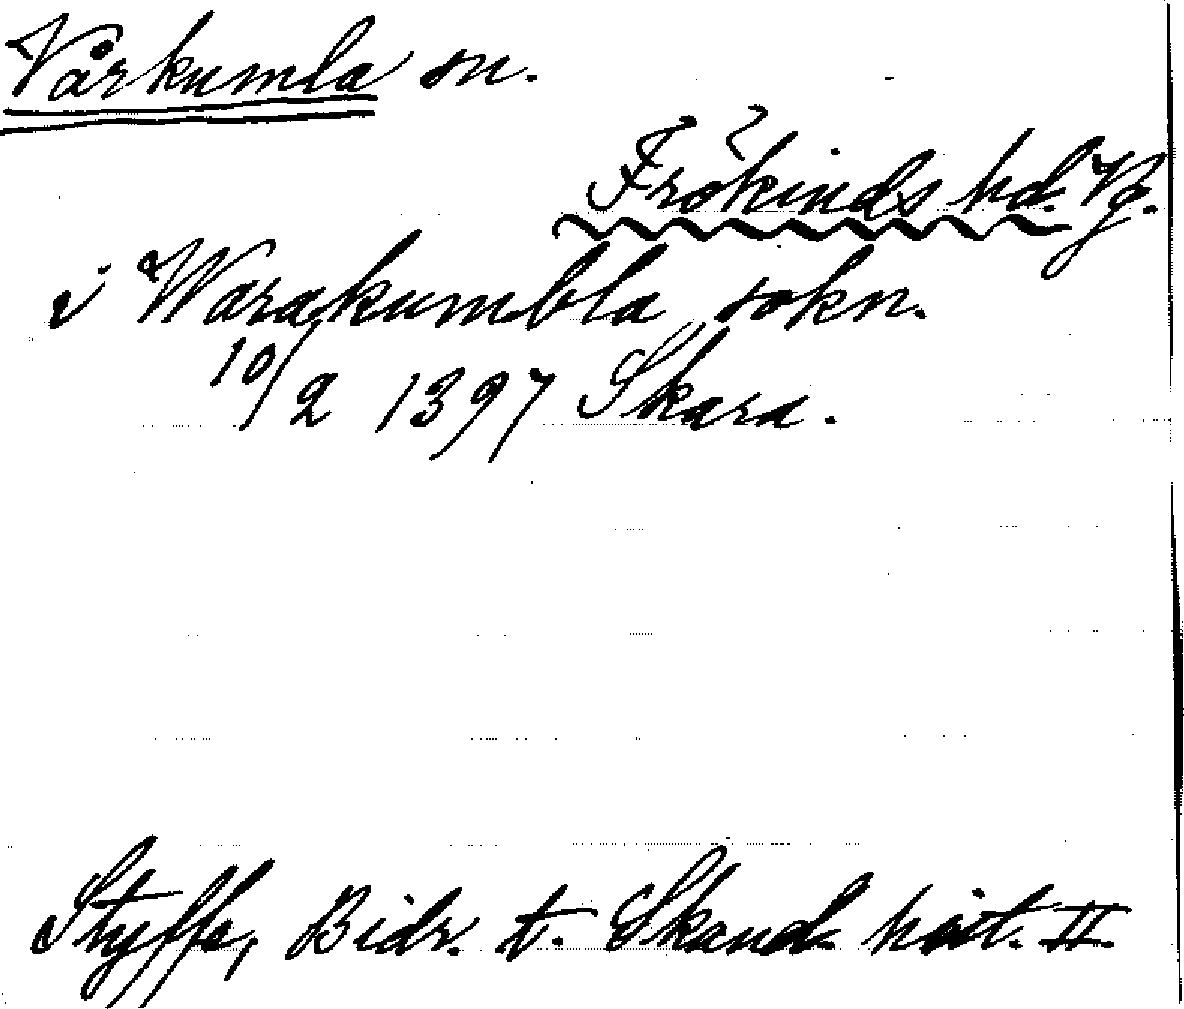 Vårkumla sn.
Frökinds hd. Vg.
i Warakumbla sokn.
10/2 1397 Skara.
Styffe, Bidr. t. Skand. hist. II.